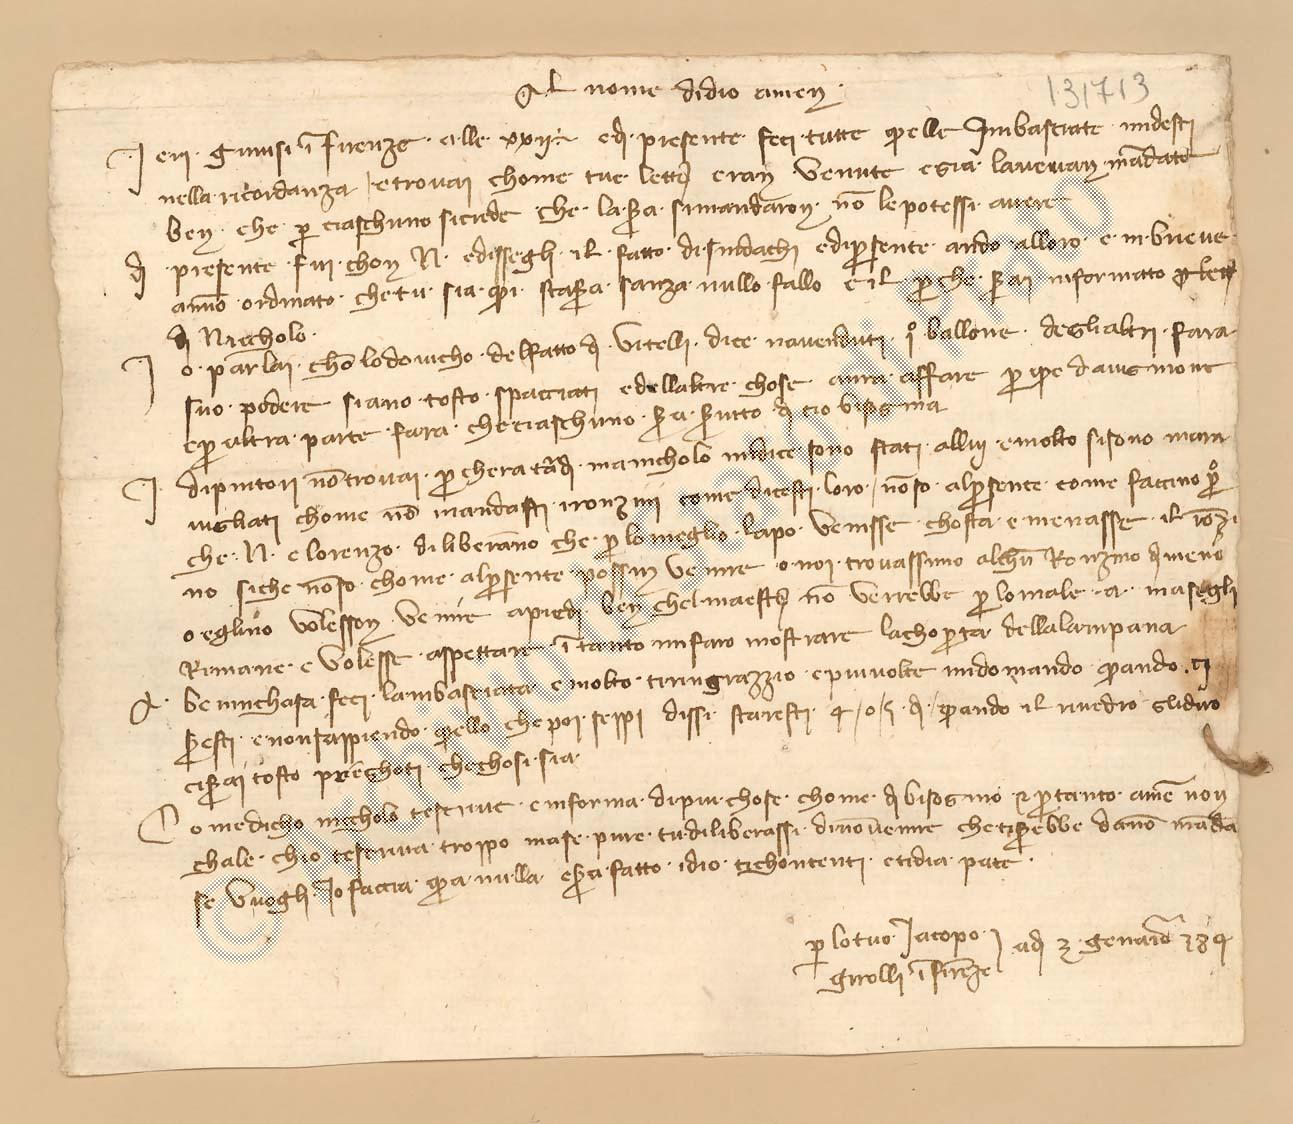 Al nome didio amen
131713
Ieri giunsi ī firenze alle xxij e đ presente feci tutte quelle Imbasciate midesti
nella ricordanza e trovai chome tue letter eran venute e gia lavevan mādate
ben che p ciaschuno sicrede che la sera simandaron nō le potessi avere
đ presente fui chon N. edissegli il fatto di edipresente ando alloro e in brieve
anno ordinato chetu sia qui stasera sanza nullo fallo e il perche serai informato p letter
đ Niccholo
Io parlai chō lodovicho delfatto đ vitelli dice navenduti ballone deglialtri fara
suo podere siano tosto spacciati e dellaltre chose avra affare p
e p altra parte fara che ciaschuno sera đ cio bisogna
I dipintori nō trovai p chera tādi maniccholo mi dice sono stati allui e molto sisono mara
vigliati chome nō mandasti ironzini come dicesti loro nōso alpresente come faccino però
che N. e lorenzo diliberano che p lomeglio lapo venisse chosta e menasse il ronzi
no siche nōso chome alpresente possin venire o noi trovassimo alchun Ronzino đ meno
o eglino volesson venire apiedi ben chelmaestro nō verrebbe p lomale a ma segli
Rimane e volesse aspettare ī tanto mifaro mostrare lachoperta dellalampana
A beninchasa feci lambasciata e molto tiringrazzio e piuvolte midomando quando ci
seresti e non sappiendo quello che poi seppi dissi staresti 4 o 5 đ quando il nuedro
ciserai tosto prieghoti chechosi sia
Come dicho niccholo tescrive e informa dipiu chose chome đ bisogno e pertanto a me non
chale chio tescriva troppo mase pure tudiliberassi dinōvenire chetiserebbe danō māda
se vuogli Io faccia qua nulla e sera fatto idio tichontenti e tidia pace
p lo tuo Jacopo
girolli ī firenze
adi 3 genaio 384